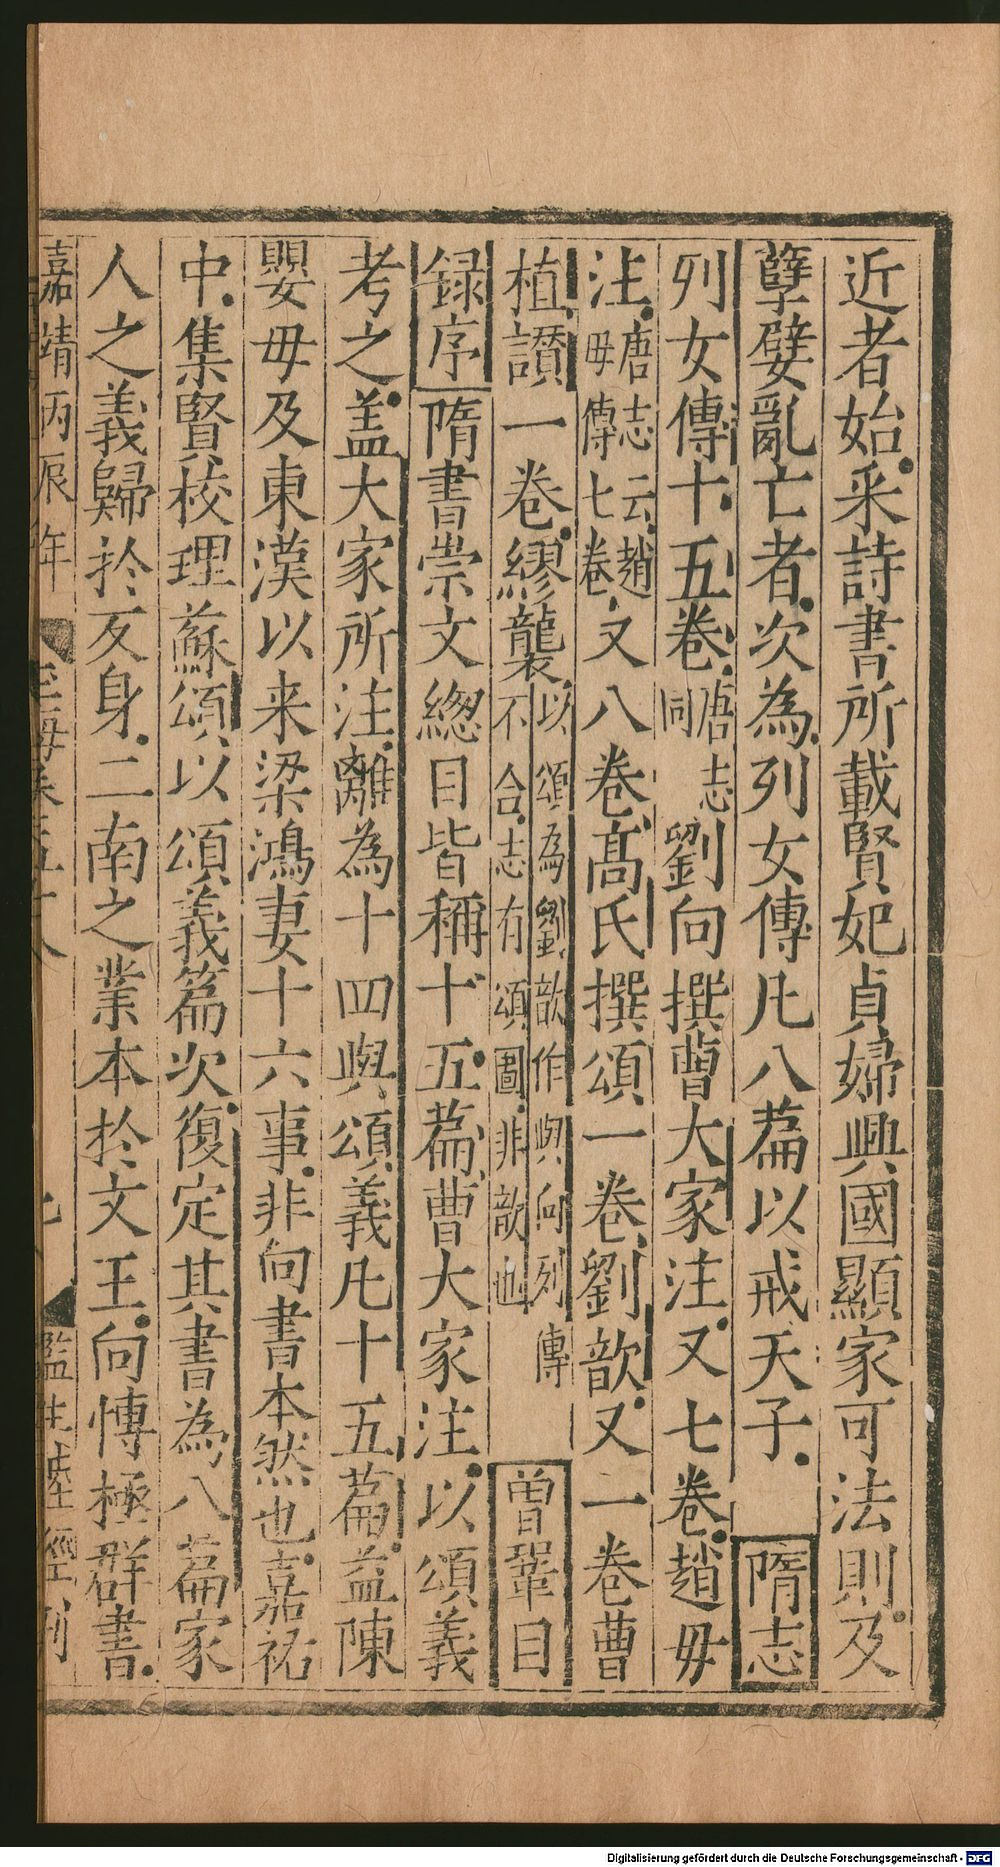 近者始采詩書所載賢妃貞婦興國顯家可法則及
孽嬖亂亡者次為列女傳凡八篇以戒天子隋志
列女傳十五卷唐志同劉向撰曹大家注又七卷趙毋
注唐志云趙毋傳七卷又八卷髙氏撰頌一卷劉歆又一卷曹
植讃一卷繆襲以頌為劉歆作與向列傳不合志有頌圖非歆也曾鞏目
録序隋書崇文緫目皆稱十五篇曹大家注以頌義
考之盖大家所注離為十四與頌義凡十五篇益陳
嬰毋及東漢以来梁鴻妻十六事非向書本然也嘉祐
中集賢校理蘇頌以頌義篇次復定其書為八篇家
人之義歸於反身二南之業本於文王向博極群書
嘉靖丙辰年
玉海卷五十八
監生陸經刊
Digitalisierung gefördert durch die Deutsche Forschungsgemeinschaft - DFG